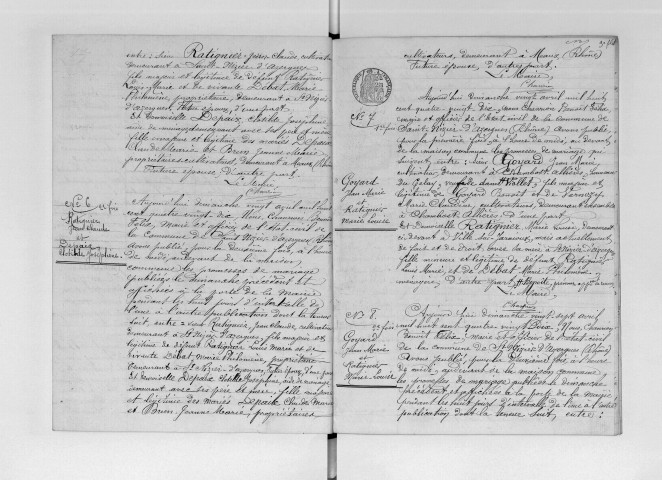 entre: Sieur Ratignier Jean Claude, cultivateur
demeurant à Saint Nizier d'Azergues
fils majeur et légitime de défunt Ratignier
Louis Marie et de vivante Debat Marie
Philomène, propriétaire, demeurant à St Nizier
d'Azergues, futur époux, d'une part
Et Demoiselle Depaix Clotilde Joséphine,
aide de ménage demeurant avec ses père et mère
fille majeure et légitime des mariés Depaix
Claude Marie et Brun Jeanne Marie
propriétaires cultivateurs, demeurant à Meaux, Rhône
Future épouse, d'autre part.
Le Maire,
No 6
Ratignier
Jean Claude
et
Depaix
Clotilde Joséphine
Aujourd'hui dimanche vingt avril mil huit
cent quatre vingt dix, Nous
Félix, Maire et officier de l'état civil de
la Commune de Saint Nizier d'Azergues, Rhône
Avons publié, pour la deuxième fois, à l'heure
de midi, au devant de la maison
commune les promesses de mariage
publiées le dimanche précédent et
affichées à la porte de la mairie
pendant les huit jours d'intervalle de
l'une à l'autre publication dont la teneur
suit, entre: Sieur Ratignier, Jean Claude, cultivateur
demeurant à St Nizier d'Azergues, fils majeur et
légitime de défunt Ratignier Louis Marie et de
vivante Debat Marie Philomène, propriétaire
demeurant à St Nizier d'Azergues, futur époux, d'une part
Et Demoiselle Depaix Clotilde Joséphine, aide de ménage
demeurant avec ses père et mère, fille majeure
et légitime des mariés Depaix Claude Marie
et Brun Jeanne Marie, propriétaires
cultivateurs, demeurant à Meaux, (Rhône)
Future épouse, d'autre part.
Le Maire,
No 7
1re fois
Goyard
Jean Marie
et
Ratignier
Marie Louise
Aujourd'hui dimanche vingt avril mil huit
cent quatre vingt dix, Nous
Maire et officier de l'état civil de la commune de
Saint Nizier d'Azergues, (Rhône) Avons publié,
pour la première fois, à l'heure de midi, au devant
de la maison commune les promesses de mariage qui
suivent entre: Sieur Goyard Jean Marie,
cultivateur, demeurant à Chambost Allières,
fils majeur et
légitime de Goyard
Marie Claudine, cultivateurs, demeurant ensemble
à Chambost Allières, d'une part
Et Demoiselle Ratignier Marie Louise, demeurant
ci devant à Ville sur Jarnioux, mais actuellement
de fait et de droit avec sa mère à St Nizier d'Azergues,
fille mineure et légitime de défunt Ratignier
Louis Marie, et de Debat Marie Philomène,
ménagère, d'autre part.
Le Maire,
No 8.
2e fois
Goyard
Jean Marie
et
Ratignier
Marie Louise
Aujourd'hui dimanche vingt sept avril
mil huit cent quatre vingt dix, Nous
Félix, Maire et officier de l'état civil
de la Commune de St Nizier d'Azergues (Rhône)
Avons publié, pour la deuxième fois, à l'heure
de midi, au devant de la maison commune,
les promesses de mariage publiées le dimanche
précédent, et affichées à la porte de la mairie
pendant les huit jours d'intervalle de l'une à l'autre
publication dont la teneur suit, entre: